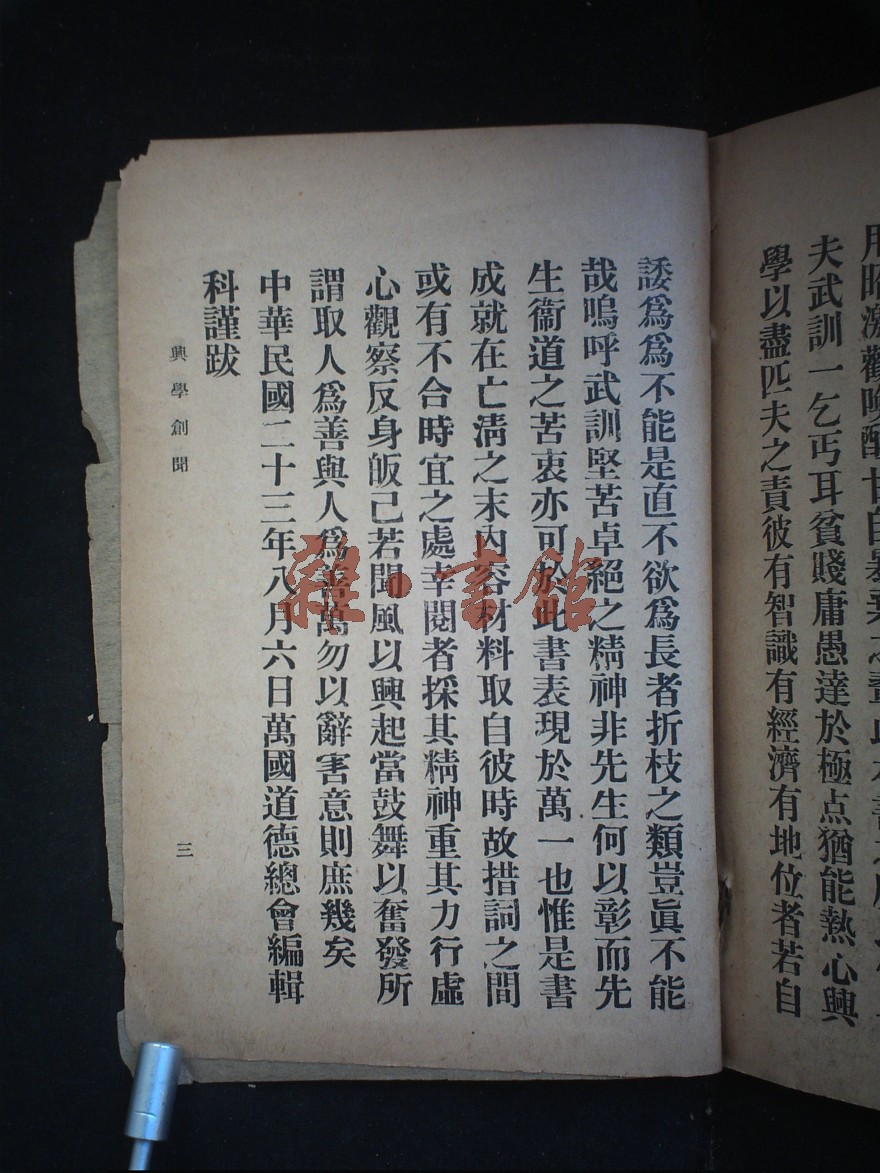 夫武訓一乞丐耳貧賤庸愚達於極点猶能熱心興
學以盡匹夫之責彼有智識有經濟有地位者若自
諉爲爲不能是直不欲爲長者折枝之類豈眞不能
哉嗚呼武訓堅苦卓絕之精神非先生何以彰而先
生衞道之苦衷亦可於此書表現於萬一也惟是書
成就在亡淸之末內容材料取自彼時故措詞之間
或有不合時宜之處幸閱者採其精神重其力行虛
心觀察反身皈己若聞風以興起當鼓舞以奮發所
謂取人爲善與人爲善萬勿以辭害意則庶幾矣
中華民國二十三年八月六日萬國道德總會編輯
科謹跋
興學創聞
三
雜·書館